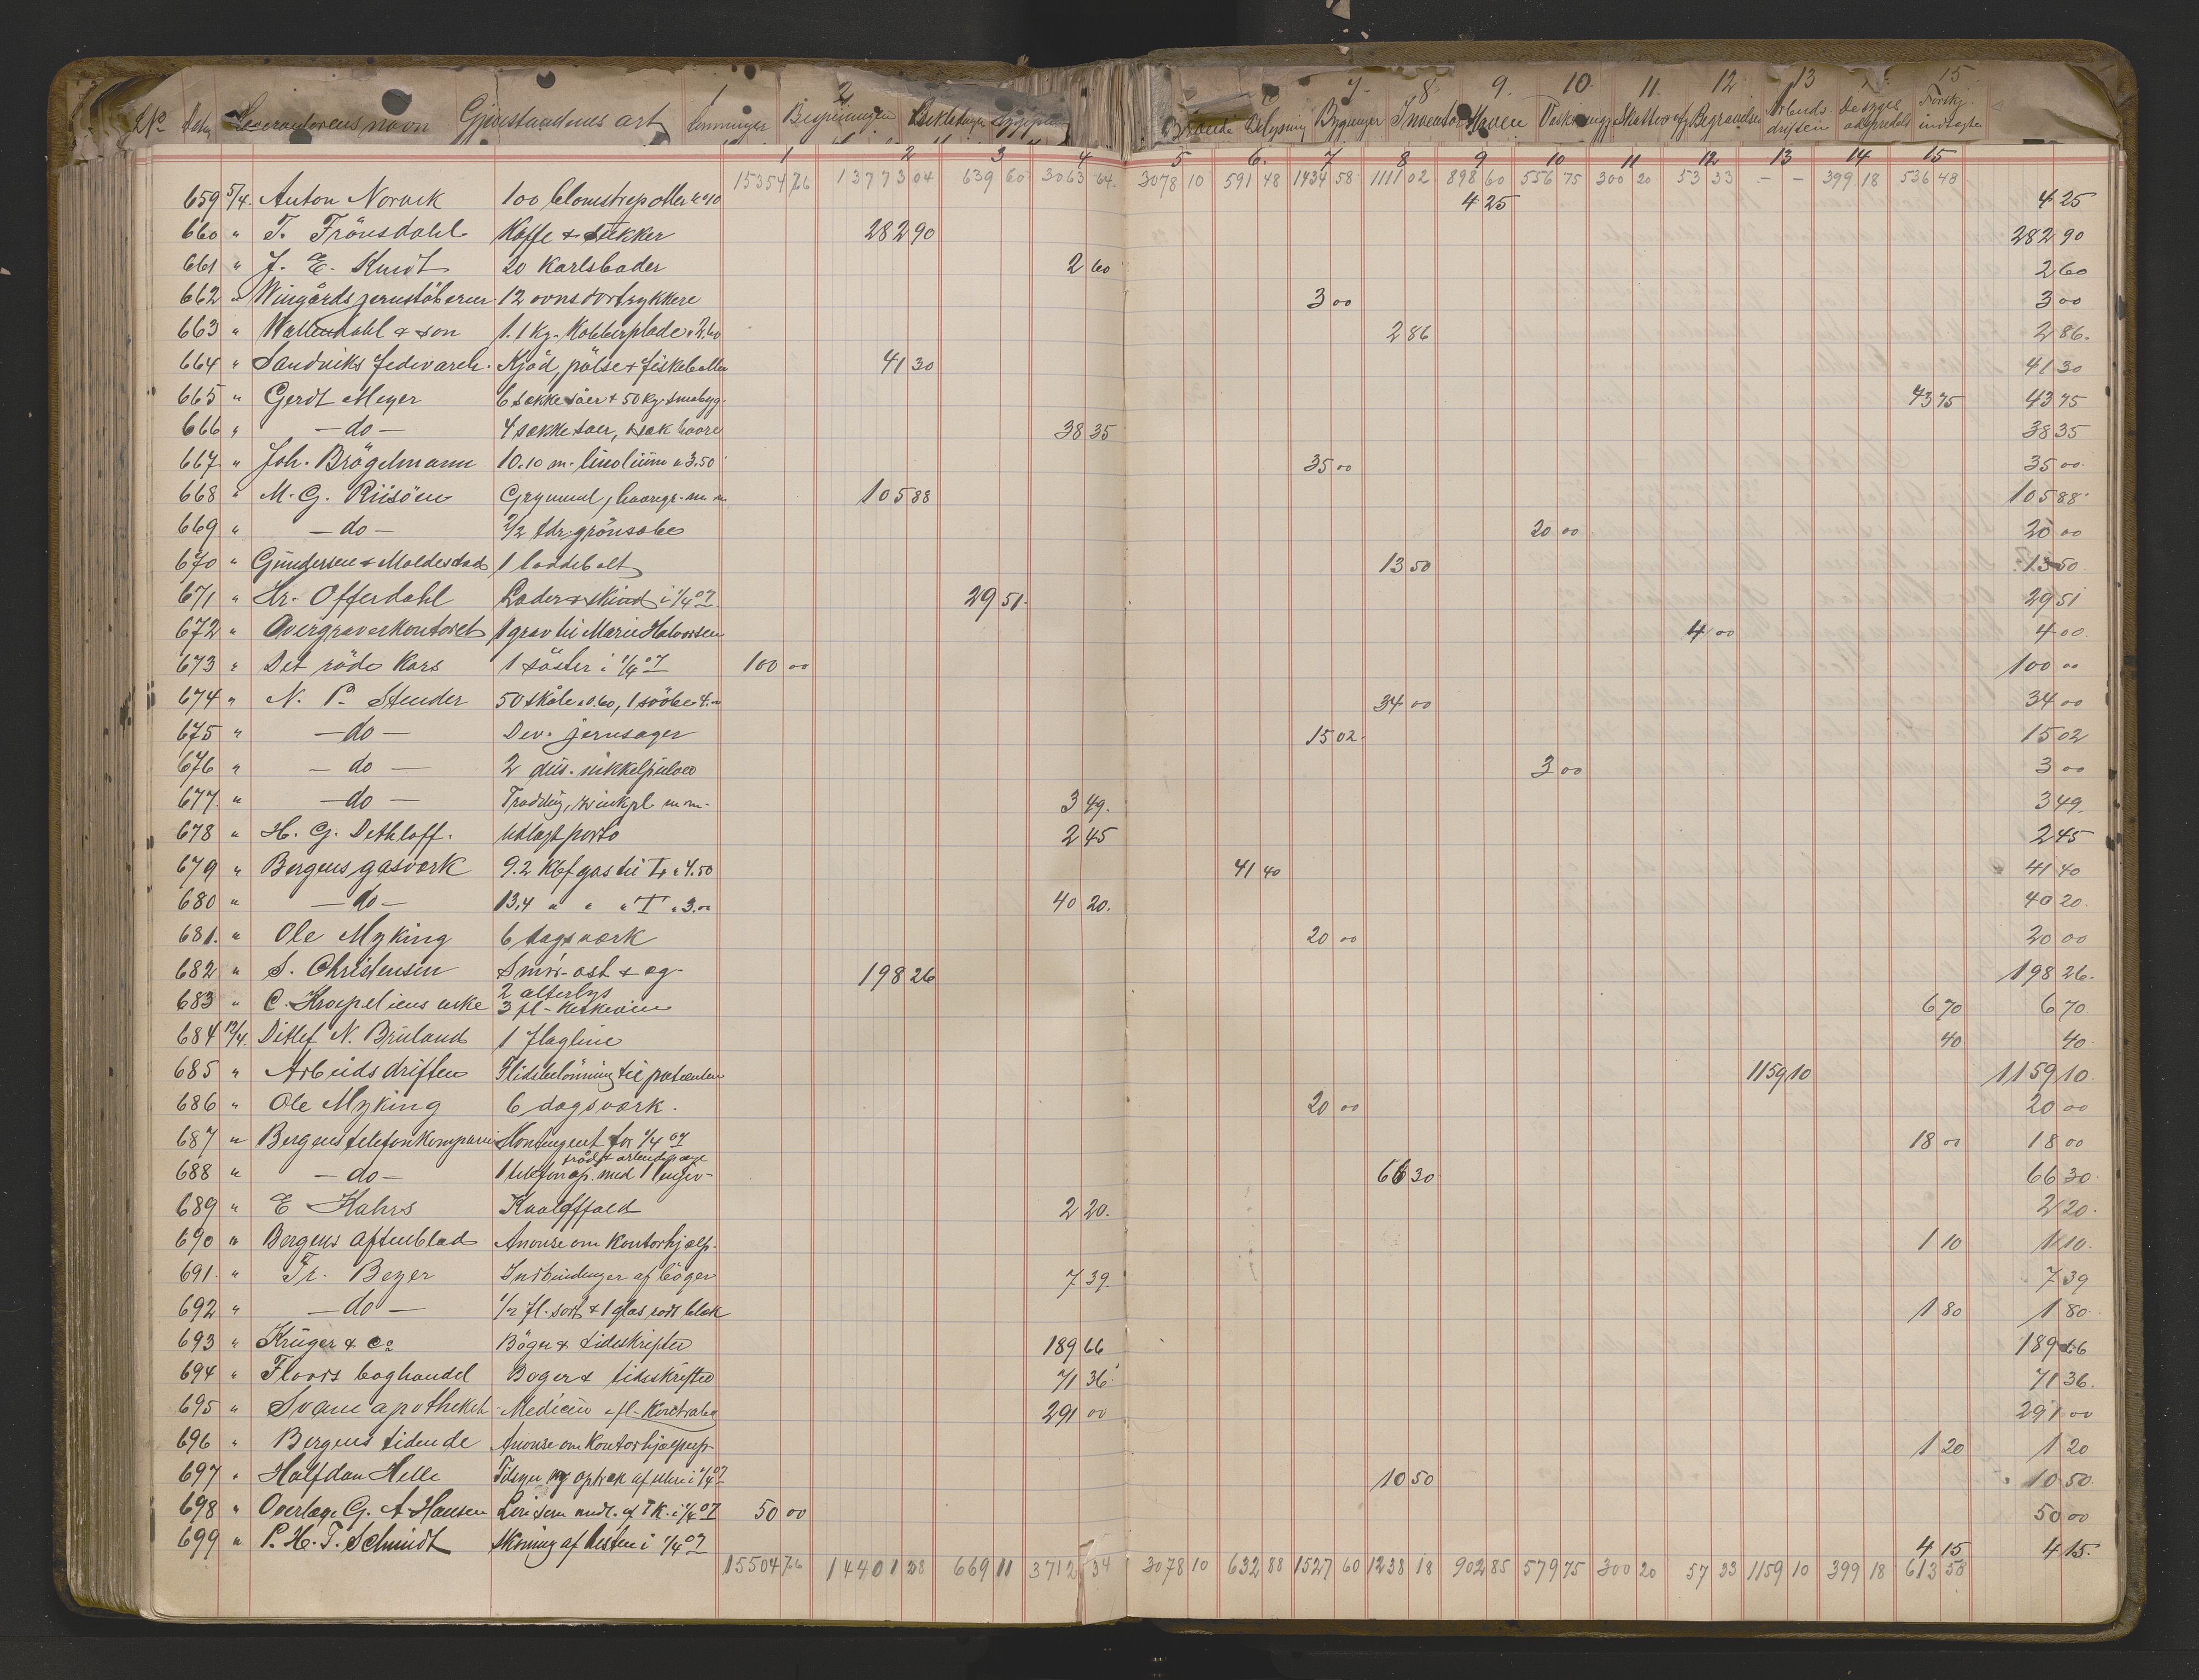 No Dato Leverandörens navn Gjenstandens art Lønninger Bespisningen Beklædning Sygepleien Brænde Belysning Bygninger Inventar Haven Vask Skatter Begravelser Arbeidsdriften Forskj. indtægter
1 2 3 4 5 6. 7 8 9 10 11 12 13 14 15
15354 76 13773 04 639 60 3063 64. 3078 10 591 48 1434 58 1111 02 898 60 556 75 300 20 53 33 — — 399 18 536 48
659 5/4. Anton Norvik 100 blomstrepotter 4 25 4 25
660 " T. Frönsdahl Kaffe & sukker 282 90 282 90
661 " J. E. Kundt 20 Karlsbader 2 60 2 60
662 " Wingårds jernstöberi 12 ovnsdortrykkere 3 00 3 00
663 " Wallendahl & son 1.1 Kg. Kobberplade a 2,60 2 86 2 86.
664 " Sandviks fedevareh. Kjöd, pölse & fiskeboller 41 30 41 30
665 " Gerdt Meyer 6 sække såer & 50 kg. smabyg. 43 75 43 75
666 " — do — 4 sække saer, sæk havre 38 35 38 35
667 " Joh. Brögelmann 10.10 m. linolium a 3.50 35 00 35 00
668 " M. G. Riisöen Grynmel, havregr. m m 105 88 105 88
669 " — do — 2/2 tdr. grönsæbe 20 00 20 00
670 " Gundersen & Moldestad 1 loddebolt 13 50 13 50
671 " Kr. Offerdahl Læder & skind i 1/4 07 29 51. 29 51
672 " Overgraverkontoret 1 grav til Marie Halvorsen 4 00 4 00
673 " Det röde Kors 1 söster i 1/4 07 100 00 100 00
674 " N. P. Stender 50 skåle a 0.60, 1 4. 34 00 34 00
675 " — do — Div. jernsager 15 02. 15 02
676 " — do — 2 dus. nikkelpulver 3 00 3 00
677 " — do — zinkpl m m. 3 49. 3 49.
678 " H. G. Dethloff. Udlagt porto 2 45 2 45
679 " Bergens gasverk 9.2 Kbf gas til a 4.50 41 40 41 40
680 " — do — 13.4 " " " T a 3.00 40 20. 40 20.
681. " Ole Myking 6 dagsværk 20 00 20 00
682 " S. Christensen Smör- ost & eg. 198 26 198 26.
683 " C. Kroepeliens enke 2 alterlys 3 fl. Kirkevin 6 70 6 70
684 12/4. Ditlef N. Bruland 1 flagline 40 40
685 " Arbeidsdriften Flidsbelönning til patienter 1159 10 1159 10.
686 " Ole Myking 6 dagsværk. 20 00 20 00
687 " Bergens telefonkompani Kontingent for 1/4 07 18 00 18 00
688 " — do — 1 telefonap. med 1 66 30 66 30
689 " E Kahrs 2 20. 2 20.
690 " Bergens aftenblad Anonse om Kontorhjælp. 1 10 1 10.
691. " Fr. Beyer Indbindinger af böger 7 39. 7 39
692 " — do — 1/2 fl. sort & 1 glas rødt blæk 1 80 1 80
693 " Krüger & Co Böger & tidsskrifter 189 66 189 66
694 " Floors boghandel Boger & tidsskrifter 71 36. 71 36.
695 " Svane apotheket Medicin 291 00 291 00
696 " Bergens tidende Anonse om Kontorhjælp 1 20 1 20
697 " Halfdan Helle Tilsyn og optræk af uhre i 1/4 07 10 50 10 50
698 " Overlæge G. A. Hansen Lön som medl. af i 1/4 07 50 00 50 00
699 " P. H. T. Schmidt Skoning af hesten i 1/4 07 4 15 4 15.
15504 76 14401 28 669 11 3712 34 3078 10 632 88 1527 60 1238 18 902 85 579 75 300 20 57 33 1159 10 399 18 613 58